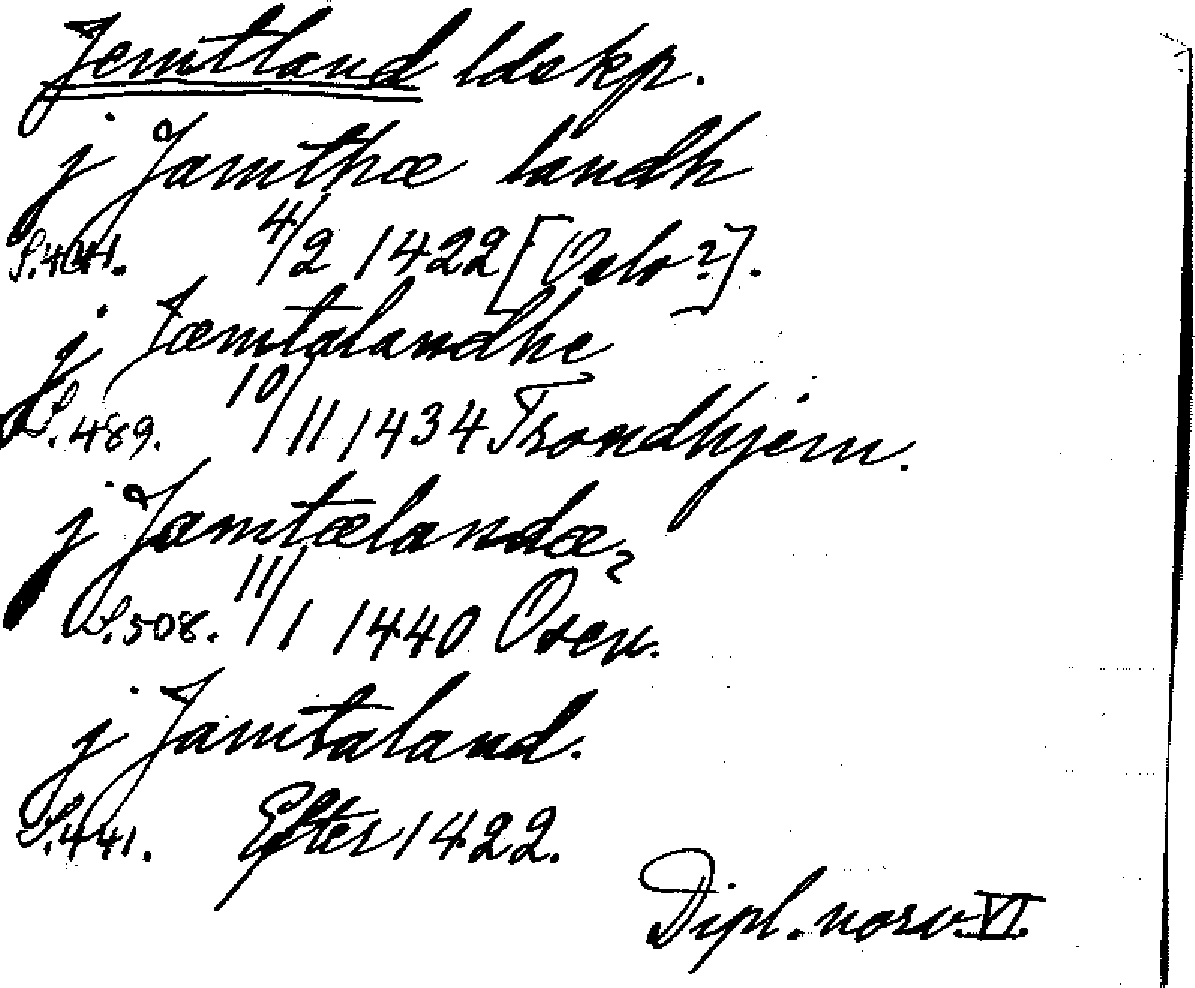 Jemtland ldskp.
j Jamthæ landh
S.441. 4/2 1422 [Oslo?].
j Jæmtalandhe
S.489. 10/11 1434 Trondhjem.
j Jæmtælandæ,
S.508. 11/1 1440 Osen.
j Jamtaland.
S.441. Efter 1422.
Dipl. norv. VI.